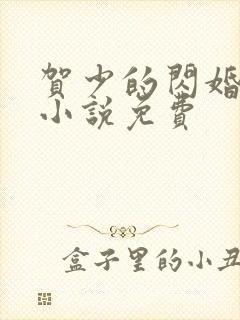 賀少的閃婚
小說免費
盒子里的小丑